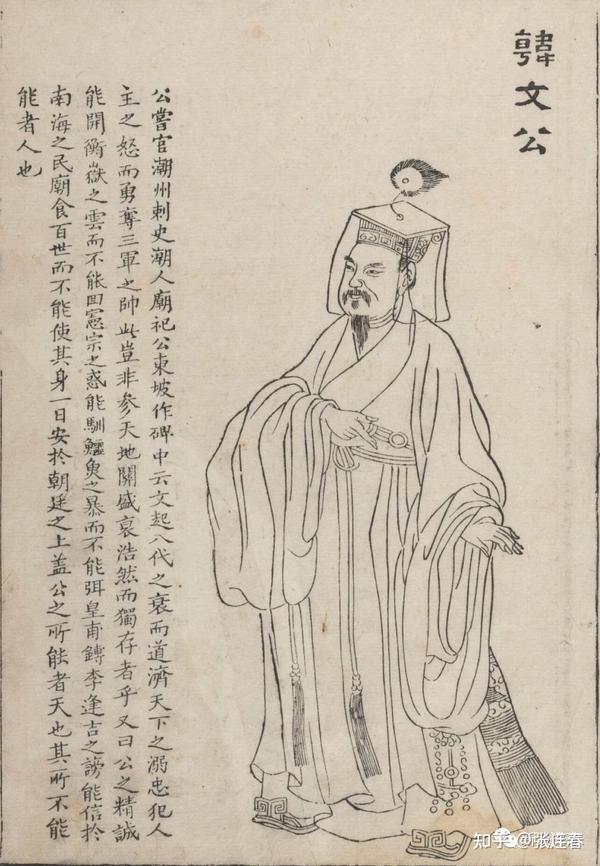 韓文公
公嘗官潮州刺史潮人廟祀公東坡作碑中云文起八代之衰而道濟天下之溺忠犯人
主之怒而勇奪三軍之帥此豈非參天地關盛衰浩然而獨存者乎又曰公之精誠
能開衡嶽之雲而不能囬憲宗之惑能馴鱷魚之暴而不能弭皇甫鏄李逢吉之謗能信於
南海之民廟食百世而不能使其身一日安於朝廷之上盖公之所能者天也其所不能
能者人也
知乎 @张连春